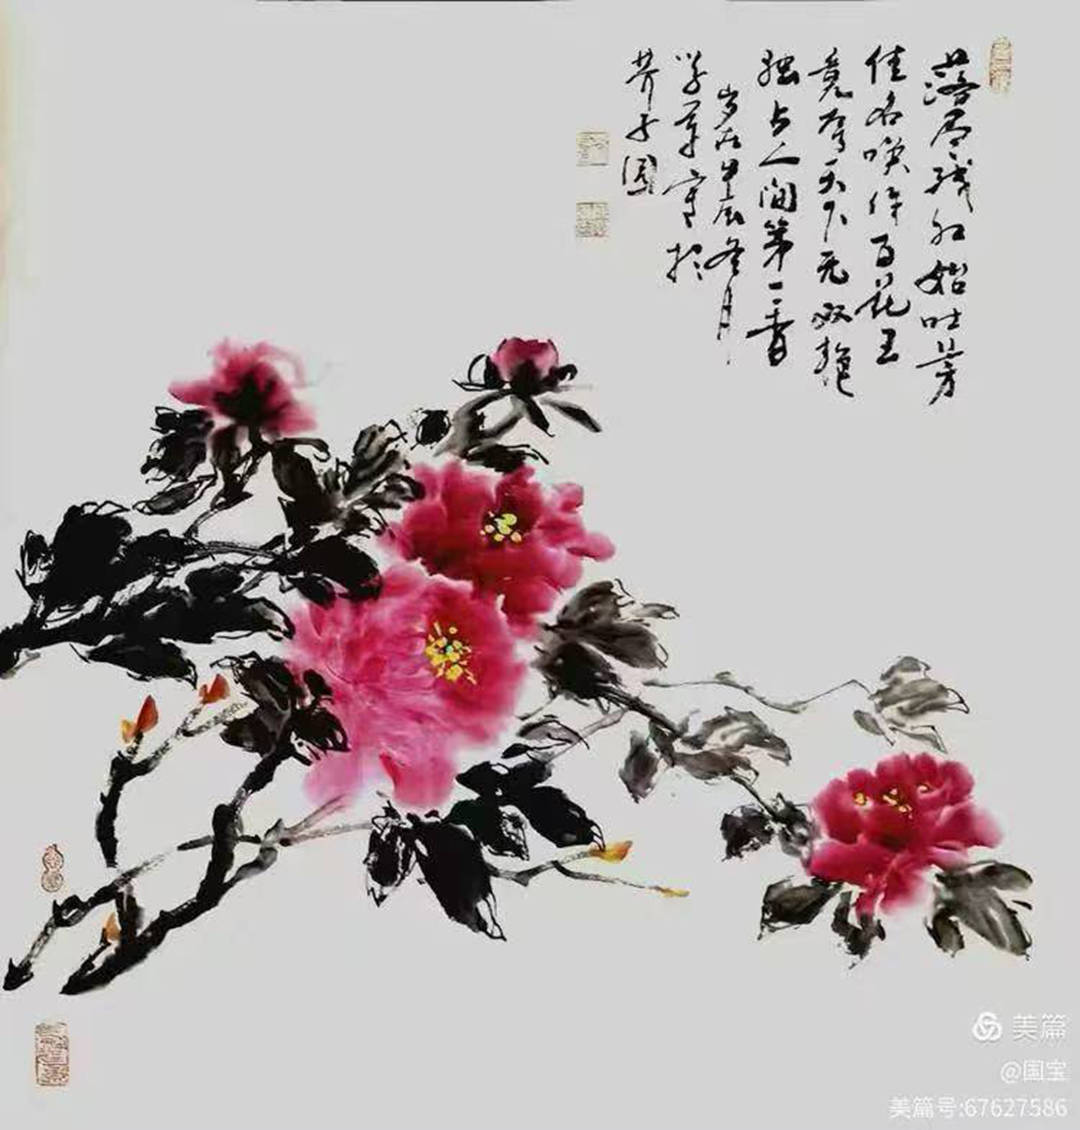 落尽残红始吐芳
佳名唤作百花王
竟夸天下无双艳
独占人间第一香
岁在甲辰冬月
学军写於
芥子园
美篇
@国宝
美篇号:67627586